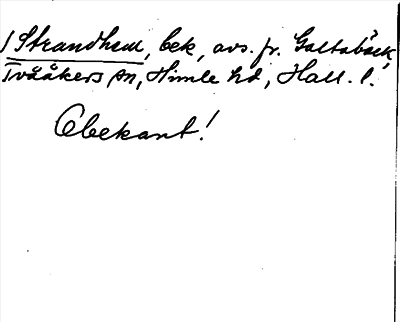 / Strandhem, bek, avs. fr. Galtabäck,
Tvååkers sn, Himle hd, Hall. l.
Obekant!